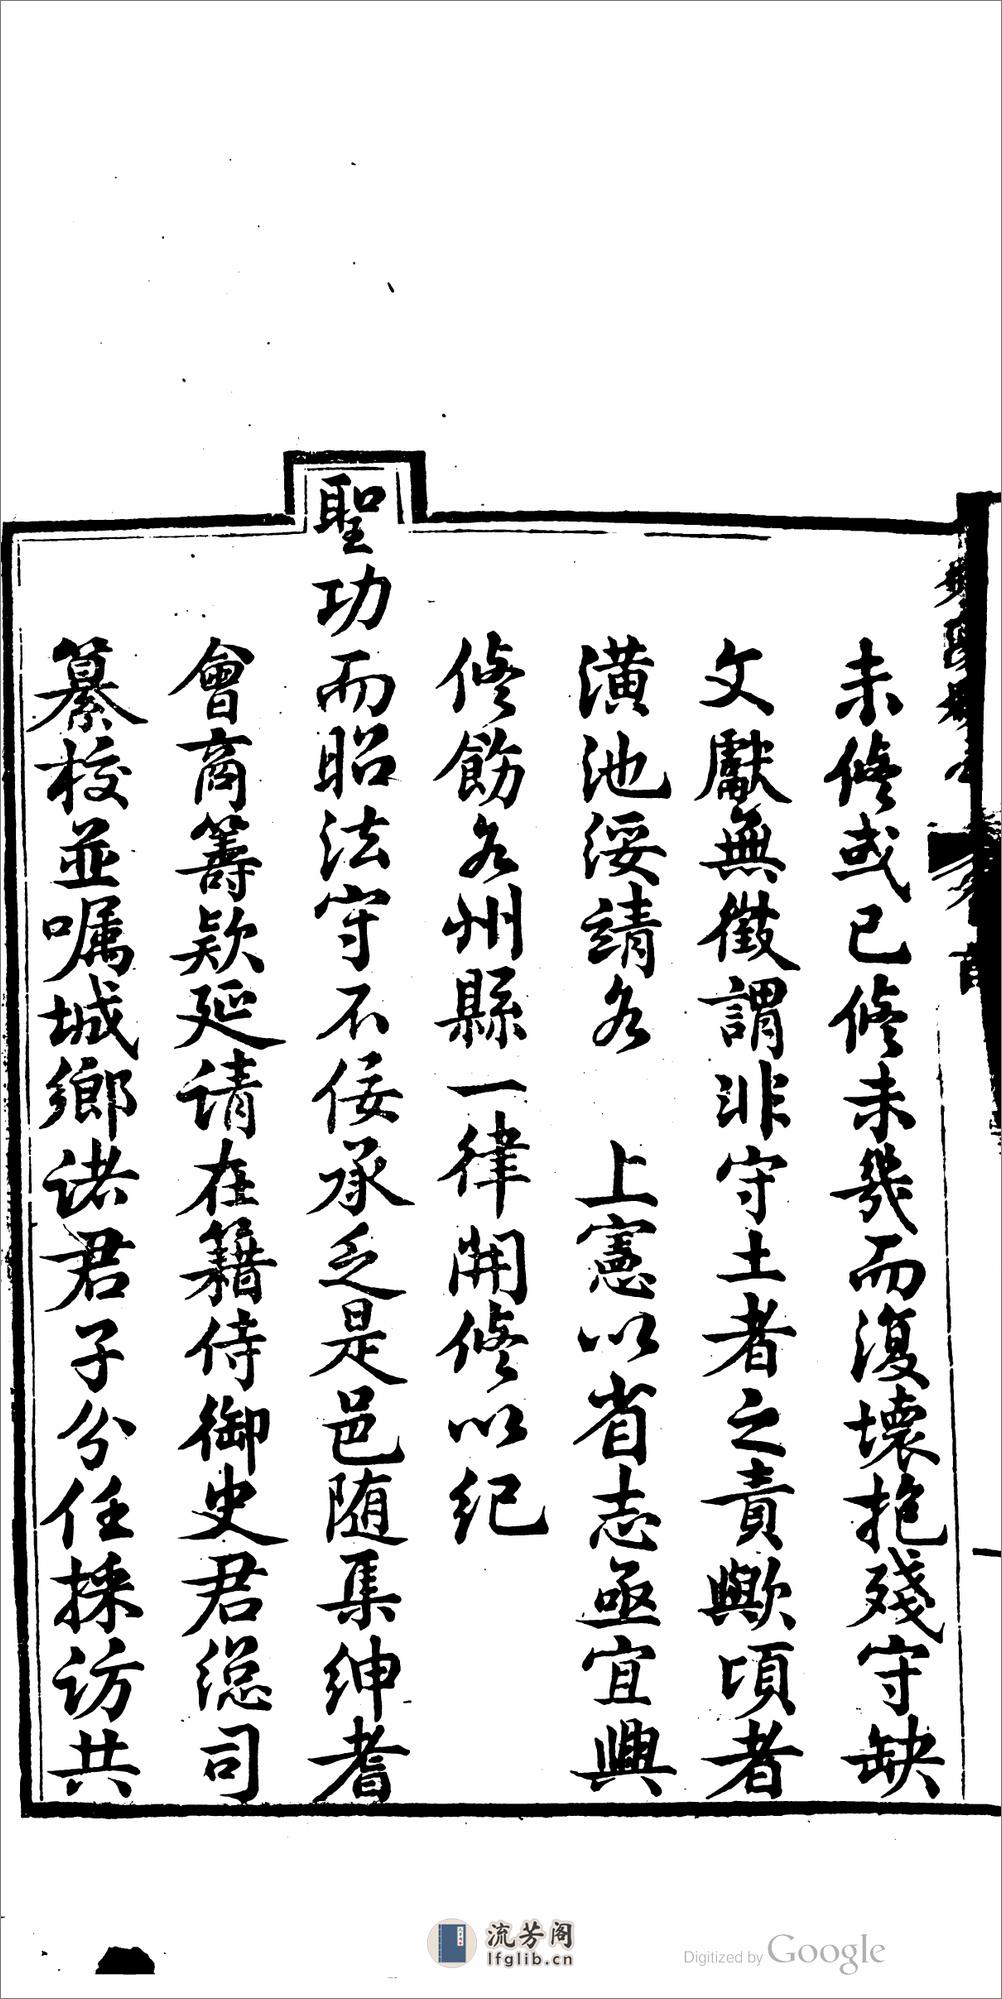 未修或已修未幾而復壞抱殘守缺
文獻無徵謂非守土者之責歟頃者
潢池綏靖各 上憲以省志亟宜興
修飭各州縣一律開修以紀
聖功而昭法守不佞承乏是邑随集紳耆
會商籌款延请在籍侍御史君總司
纂校並嘱城鄉诸君子分任採访共
流芳阁
lfglib.cn
Digitized by Google